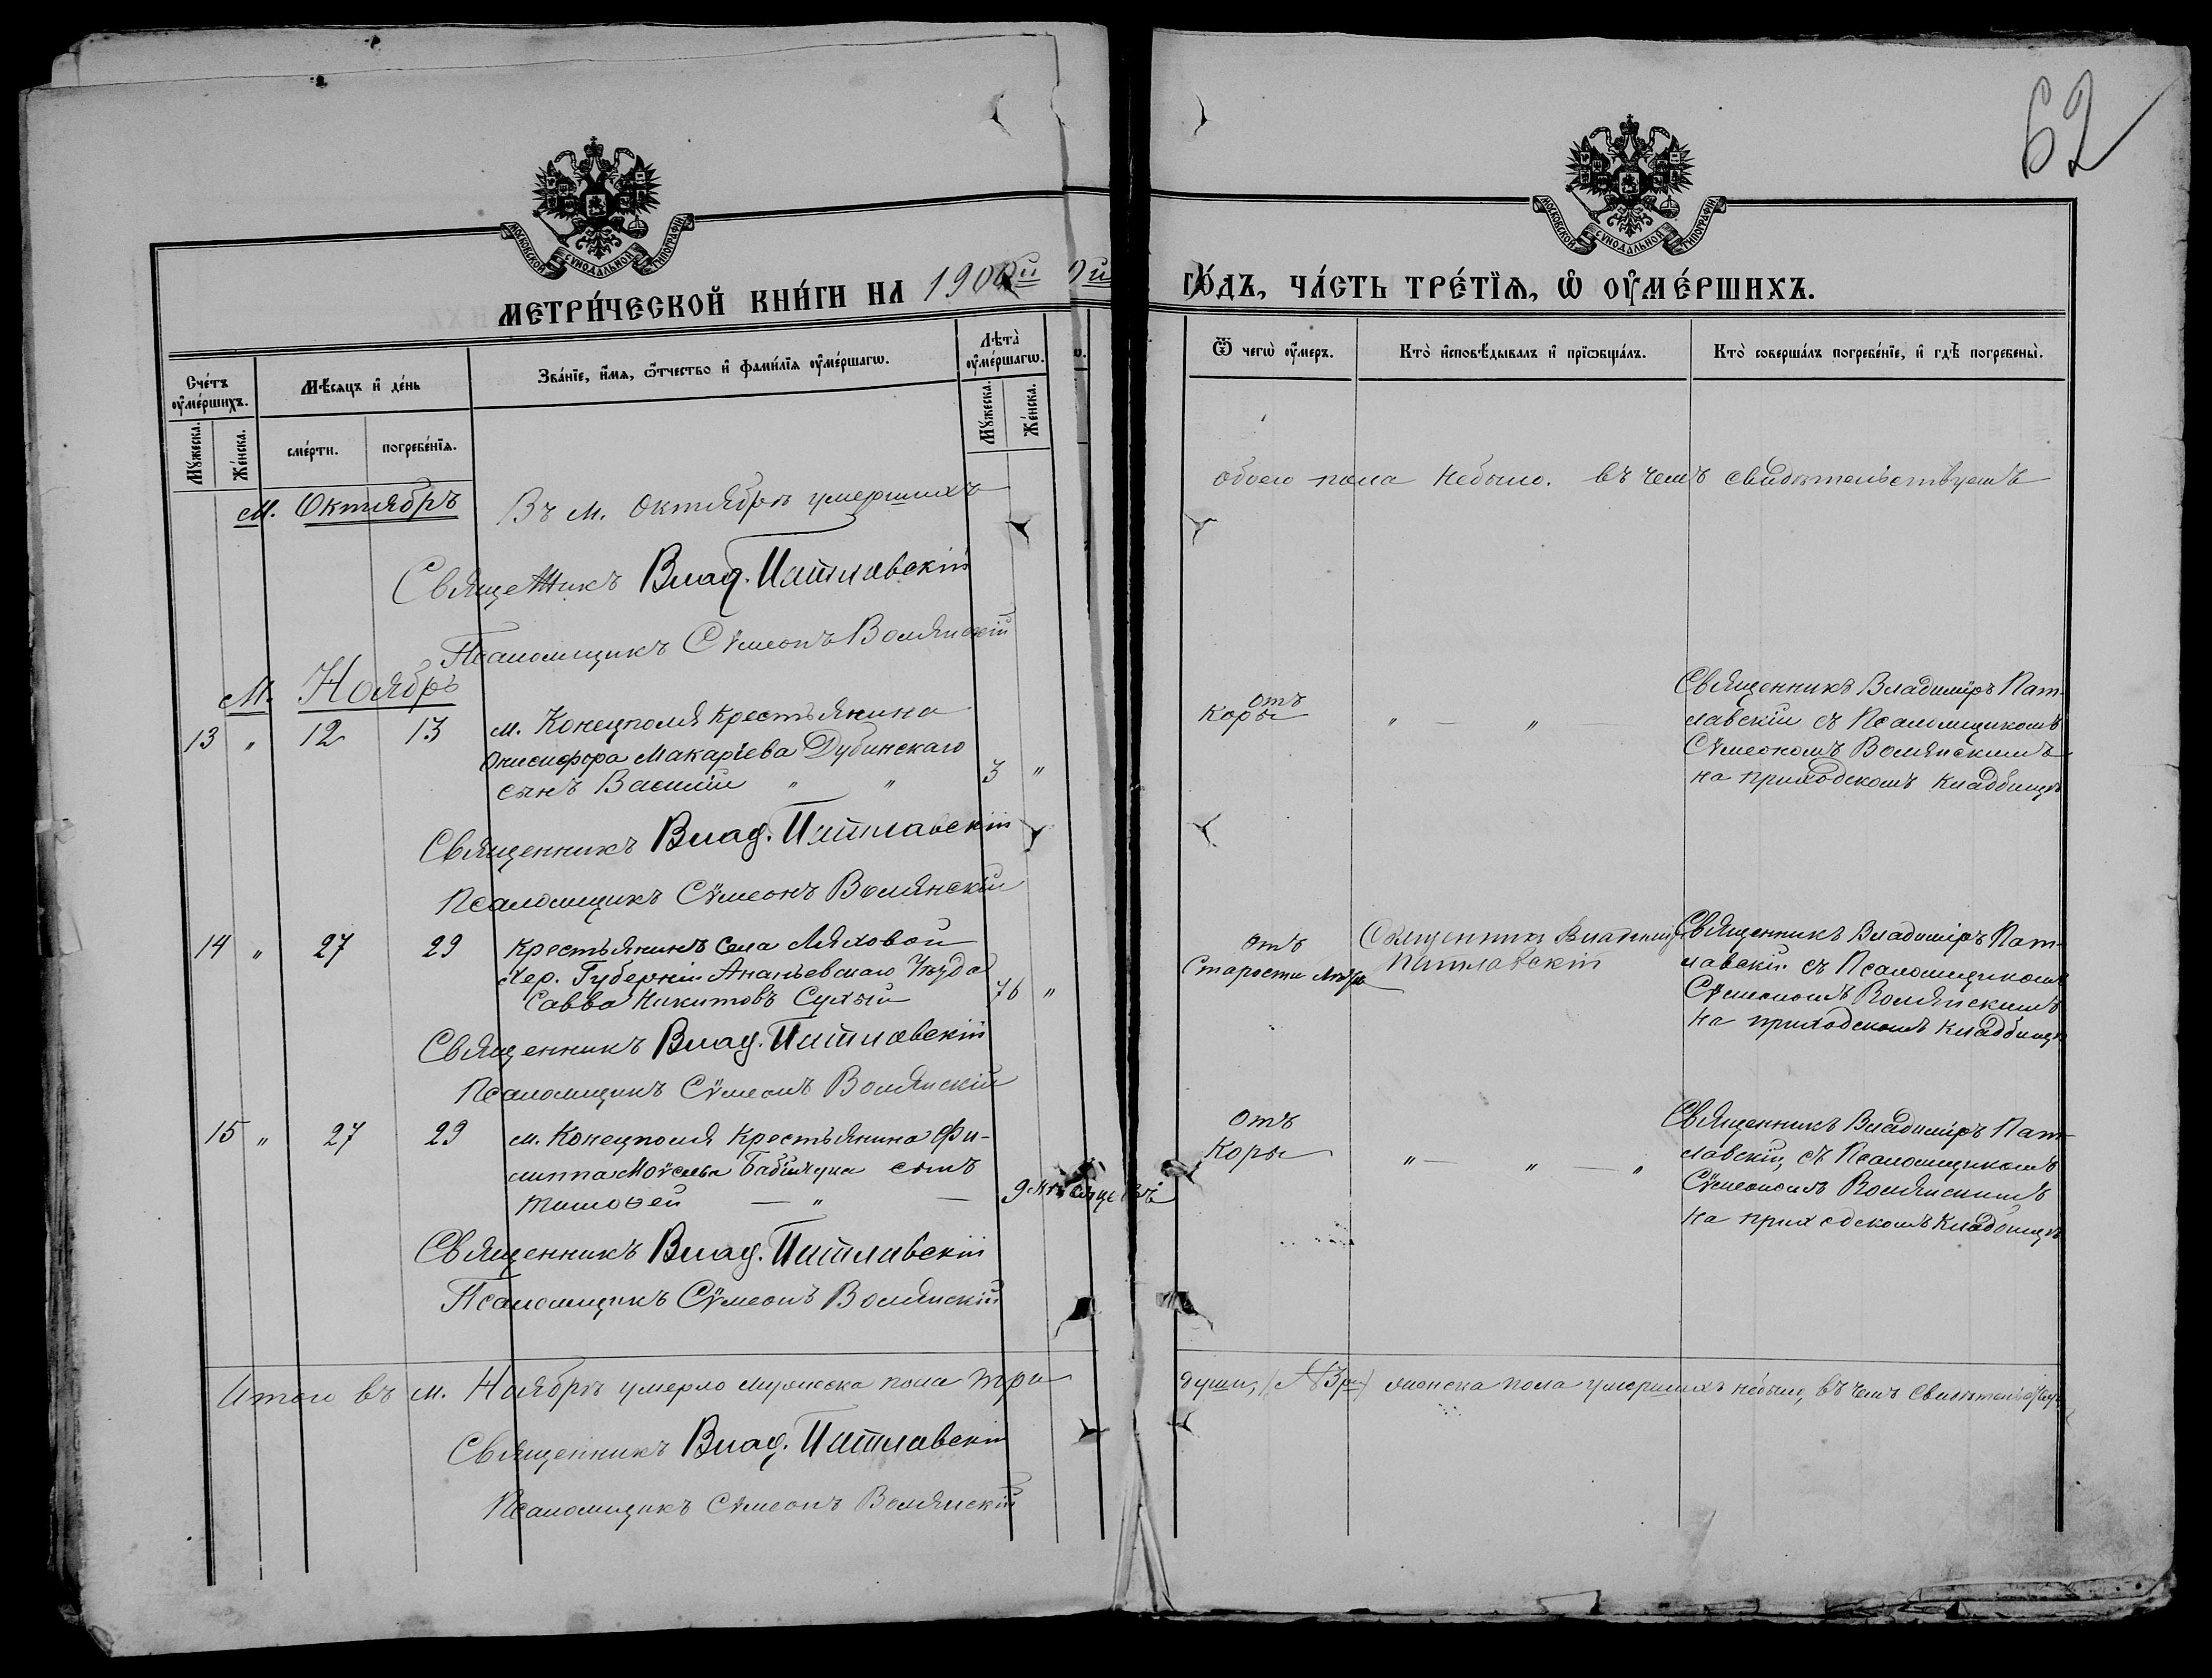 62
МОСКОВСКОЙ СУНОДАЛЬНОЙ ТИПОГРАФІИ
МОСКОВСКОЙ СУНОДАЛЬНОЙ ТИПОГРАФІИ
МЕТРИ́ЧЕСКОЙ КНИ́ГИ НА 1900й
ГО́ДЪ, ЧА́СТЬ ТРЕ́ТЇѦ, Ѡ҆ ОУ҆МЕ́РШИХЪ.
Сче́тъ оу҆ме́ршихъ.
Мꙋ́жеска.
Же́нска.
Мѣ́сѧцъ и҆ де́нь
сме́рти.
погребе́нїѧ.
Зва́нїе, и҆́мѧ, ѻ҆́тчество и҆ фами́лїѧ оу҆ме́ршагѡ.
Лѣ́та̀ оу҆ме́ршагѡ.
Мꙋ́жеска.
Же́нска.
Ѿ чегѡ̀ оу҆́меръ.
Кто̀ и҆сповѣ́дывалъ и҆ прїѡбща́лъ.
Кто̀ соверша́лъ погребе́нїе, и҆ гдѣ̀ погребены̀.
М. Октябрь
Въ м. Октябрѣ умершихъ обоего пола небыло. въ чемъ свидѣтельствуемъ
Священникъ Влад. Патлавскій
Псаломщикъ Сѵмеонъ Волянскій
М. Ноябрь
13 " 12 13
м. Конецполя крестьянина
Онисифора Макаріева Дубинскаго
сынъ Василій " " 3 "
отъ
Коры
" — " —
Священникъ Владиміръ Пат-
лавскій съ Псаломщикомъ
Сѵмеономъ Волянскимъ
на приходскомъ кладбищѣ
Священникъ Влад. Патлавскій
Псаломщикъ Сѵмеонъ Волянскій
14 " 27 29
Крестьянинъ села Ляховой
Хер. Губерніи Ананьевскаго Уѣзда
Савва Никитовъ Сухый 76 "
отъ
Старости
Священникъ Владиміръ
Патлавскій
Священникъ Владиміръ Пат-
лавскій съ Псаломщикомъ
Сѵмеономъ Волянскимъ
на приходскомъ кладбищѣ
Священникъ Влад. Патлавскій
Псаломщикъ Сѵмеонъ Волянскій
15 " 27 29
м. Конецполя крестьянина Фи-
липпа сынъ
Тимоѳей — " — 9 мѣсяцевъ
отъ
Коры
" — " — "
Священникъ Владиміръ Пат-
лавскій, съ Псаломщикомъ
Сѵмеономъ Волянскимъ
на приходскомъ кладбищѣ
Священникъ Влад. Патлавскій
Псаломщикъ Сѵмеонъ Волянскій
Итого въ м. Ноябрѣ умерло мужеска пола три души, женска пола умершихъ небыло, въ чемъ свидѣтельствуемъ
Священникъ Влад. Патлавскій
Псаломщикъ Сѵмеонъ Волянскій